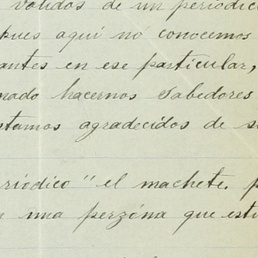 validos de un periodico
pues aquí no conocemos
antes en ese particular,
nado hacernos Sabedores
stamos agradecidos de s
eriódico" el machete. p
una perzóna que est